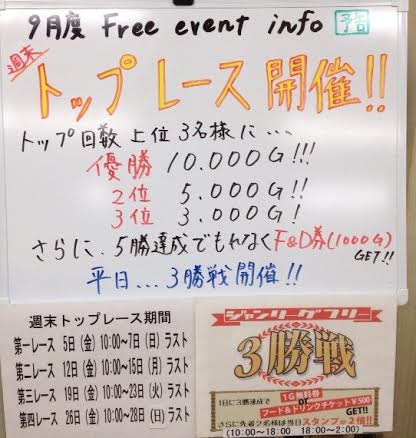 9月度 Free event info 予告
週末
トップレース 開催!!
トップ回数 上位 3名様に…
優勝 10.000G!!!
2位 5.000G!!
3位 3.000G!
さらに、5勝達成でもれなくF&D券(1000G)
GET!!
平日…3勝戦開催!!
週末トップレース期間
第一レース 5日(金)10:00~7日(日)ラスト
第二レース 12日(金)10:00~15日(月)ラスト
第三レース 19日(金)10:00~23日(火)ラスト
第四レース 26日(金)10:00~28日(日)ラスト
ジャンリーグフリー
3勝戦
1日に3勝達成で
1G無料券
or
フード&ドリンクチケット¥500
GET!!
さらに先着2名様は当日スタンプが2倍!!
(10:00~18:00 18:00~2:00)